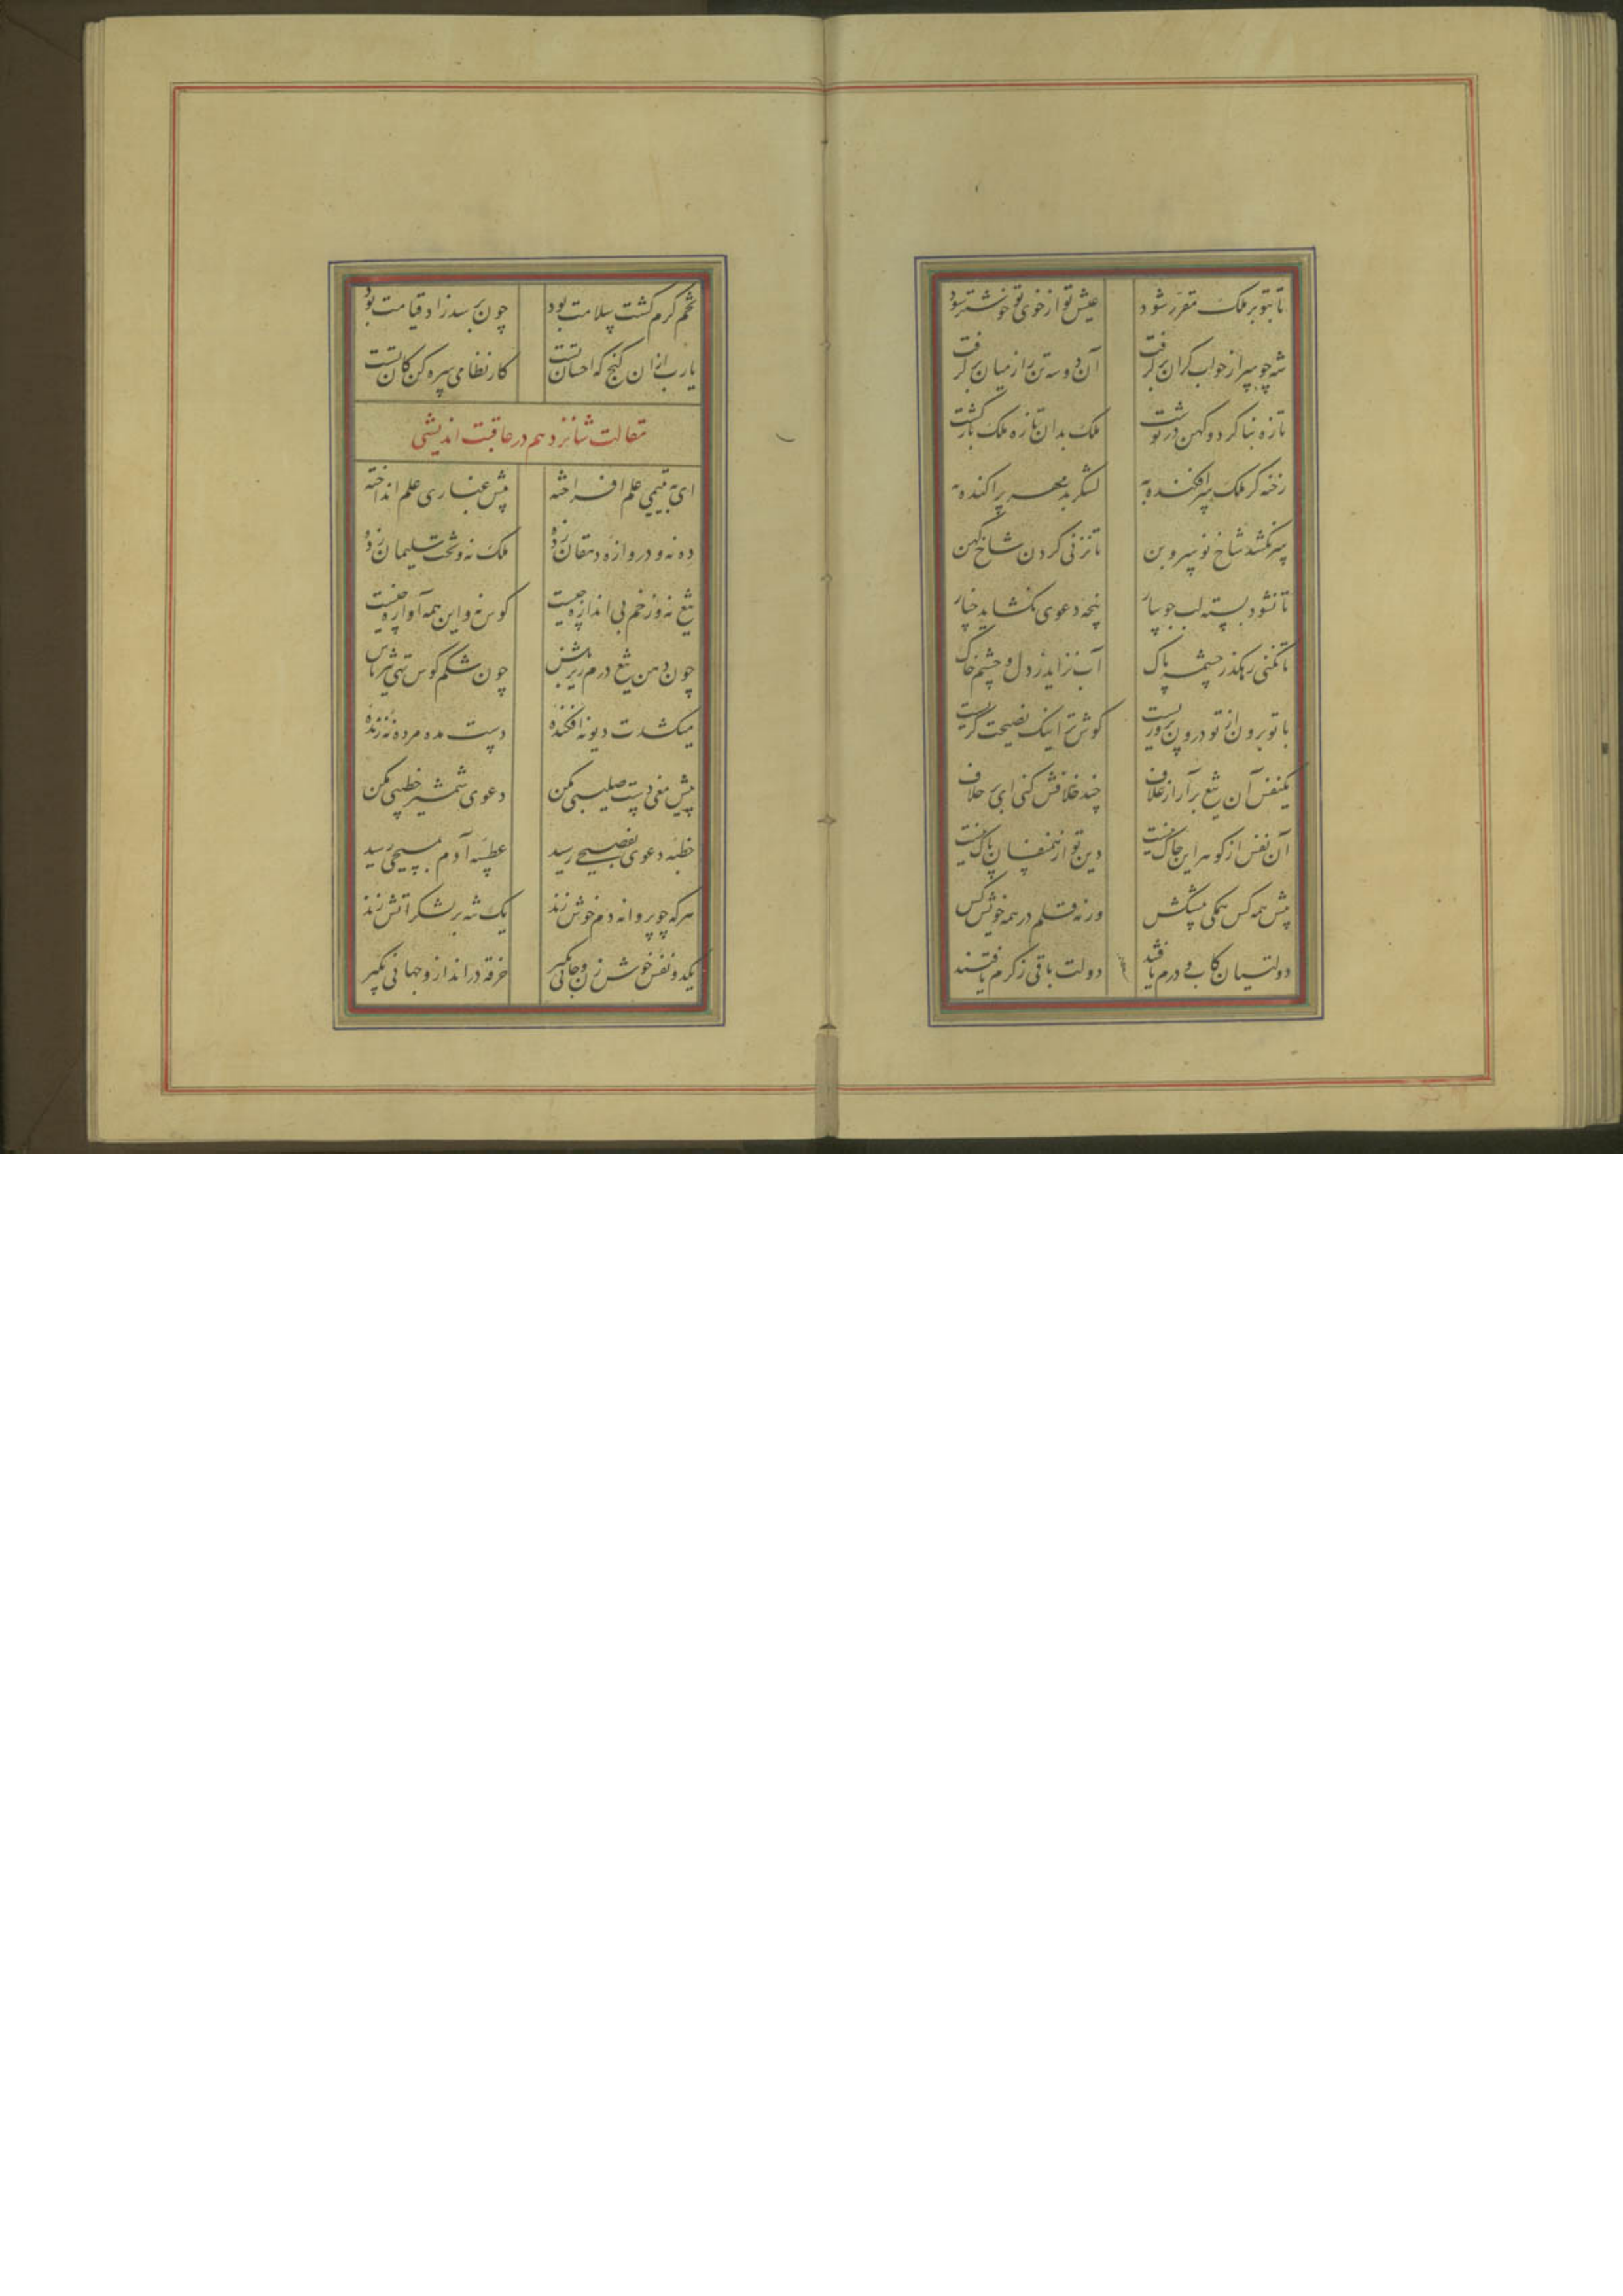 تا بتو بر ملک مقرر شود عیش تو از خوی تو خوشتر شود
شه چو سر از خواب گران برگرفت آن دو سه تن را ز میان برگرفت
تازه بنا کرد و کهن در نوشت ملک بدان تازه ملک بازگشت
رخنه گر ملک سرافکنده به لشکر بد عهد پراکنده به
سر نکشد شاخ نو از سرو بن تا نزنی گردن شاخ کهن
تا نشود بسته لب جویبار پنجه دعوی نگشاید چنار
تا نکنی رهگذر چشمه پاک آب نزاید ز دل و چشم خاک
با تو برون از تو درون پروریست گوش ترا نیک نصیحت گریست
یکنفس آن تیغ برآر از غلاف چند غلافش کنی ای بر خلاف
آن نفس از گوهر این خاک نیست دین تو از همنفسان پاک نیست
پیش همه کس همگی پیشکش ورنه قلم در همه خویش کش
دولتیان کاب و درم یافتند دولت باقی ز کرم یافتند
تخم کرم کشت سلامت بود چون برسد زاد قیامت بود
یارب از ان گنج که احسان تست کار نظامی سره کن کان تست
مقالت شانزدهم در عاقبت اندیشی
ای به نسیمی علم افراخته پیش غباری علم انداخته
ده نه و دروازه دهقان زده ملک نه و تخت سلیمان زده
تیغ نه و زخم بی اندازه چیست کوس نه و این همه آوازه چیست
چون دهن تیغ درم ریز باش چون شکم کوس تهی خیز باش
میکشدت دیو نه افکنده دست مده مرده نه زنده
پیش مغی پشت صلیبی مکن دعوی شمشیر خطیبی مکن
خطبه دعوی بفصیحی رسید عطسه آدم بمسیحی رسید
هر که چو پروانه دم خوش زند یک شبه بر لشکر آتش زند
یکدو نفس خوش زن و جانی بگیر خرقه در انداز و جهانی بگیر